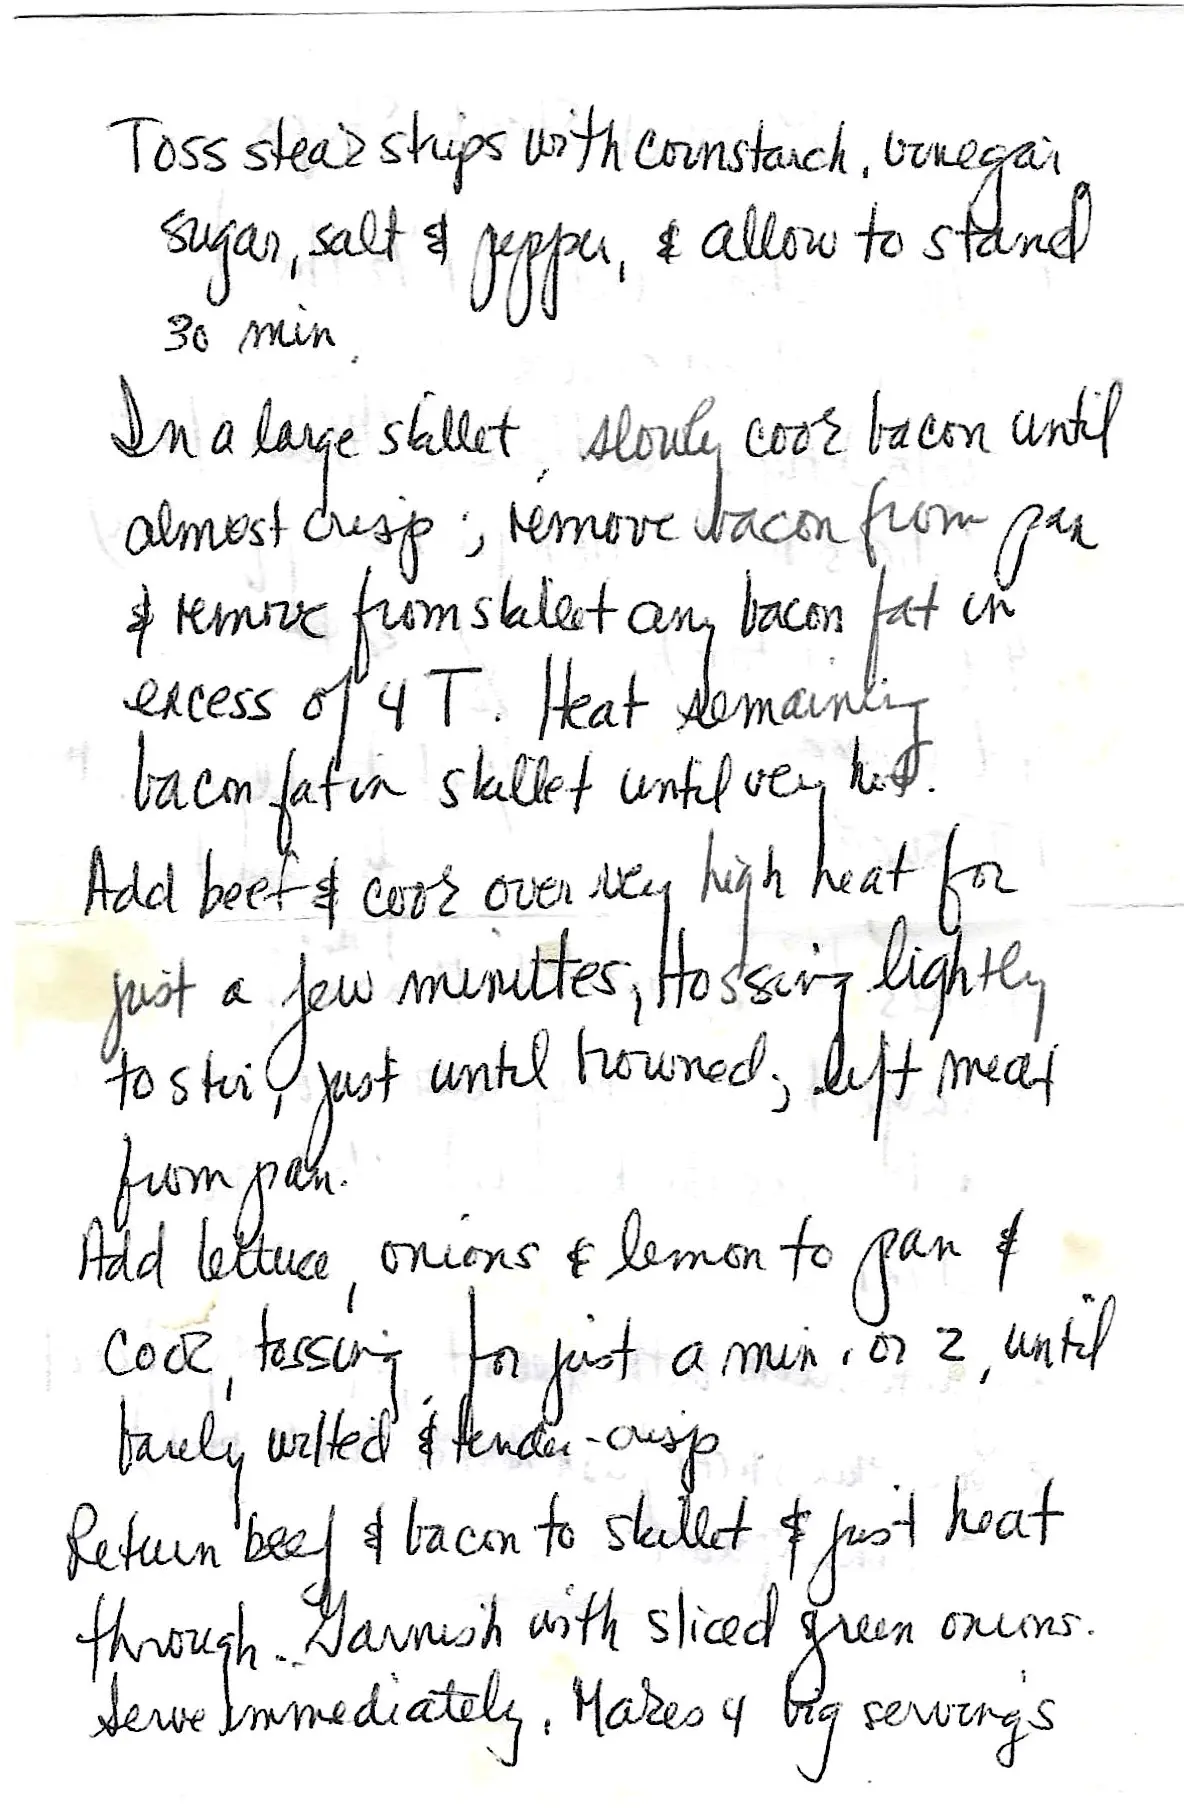 Toss steak strips with cornstarch, vinegar,
sugar, salt & pepper, & allow to stand
30 min.
In a large skillet, slowly cook bacon until
almost crisp; remove bacon from pan
& remove from skillet any bacon fat in
excess of 4 T. Heat remaining
bacon fat in skillet until very hot.
Add beef & cook over very high heat for
just a few minutes, tossing lightly
to stir, just until browned; lift meat
from pan.
Add lettuce, onions & lemon to pan &
cook, tossing, for just a min. or 2, until
barely wilted & tender-crisp.
Return beef & bacon to skillet & just heat
through. Garnish with sliced green onions.
Serve immediately. Makes 4 big servings